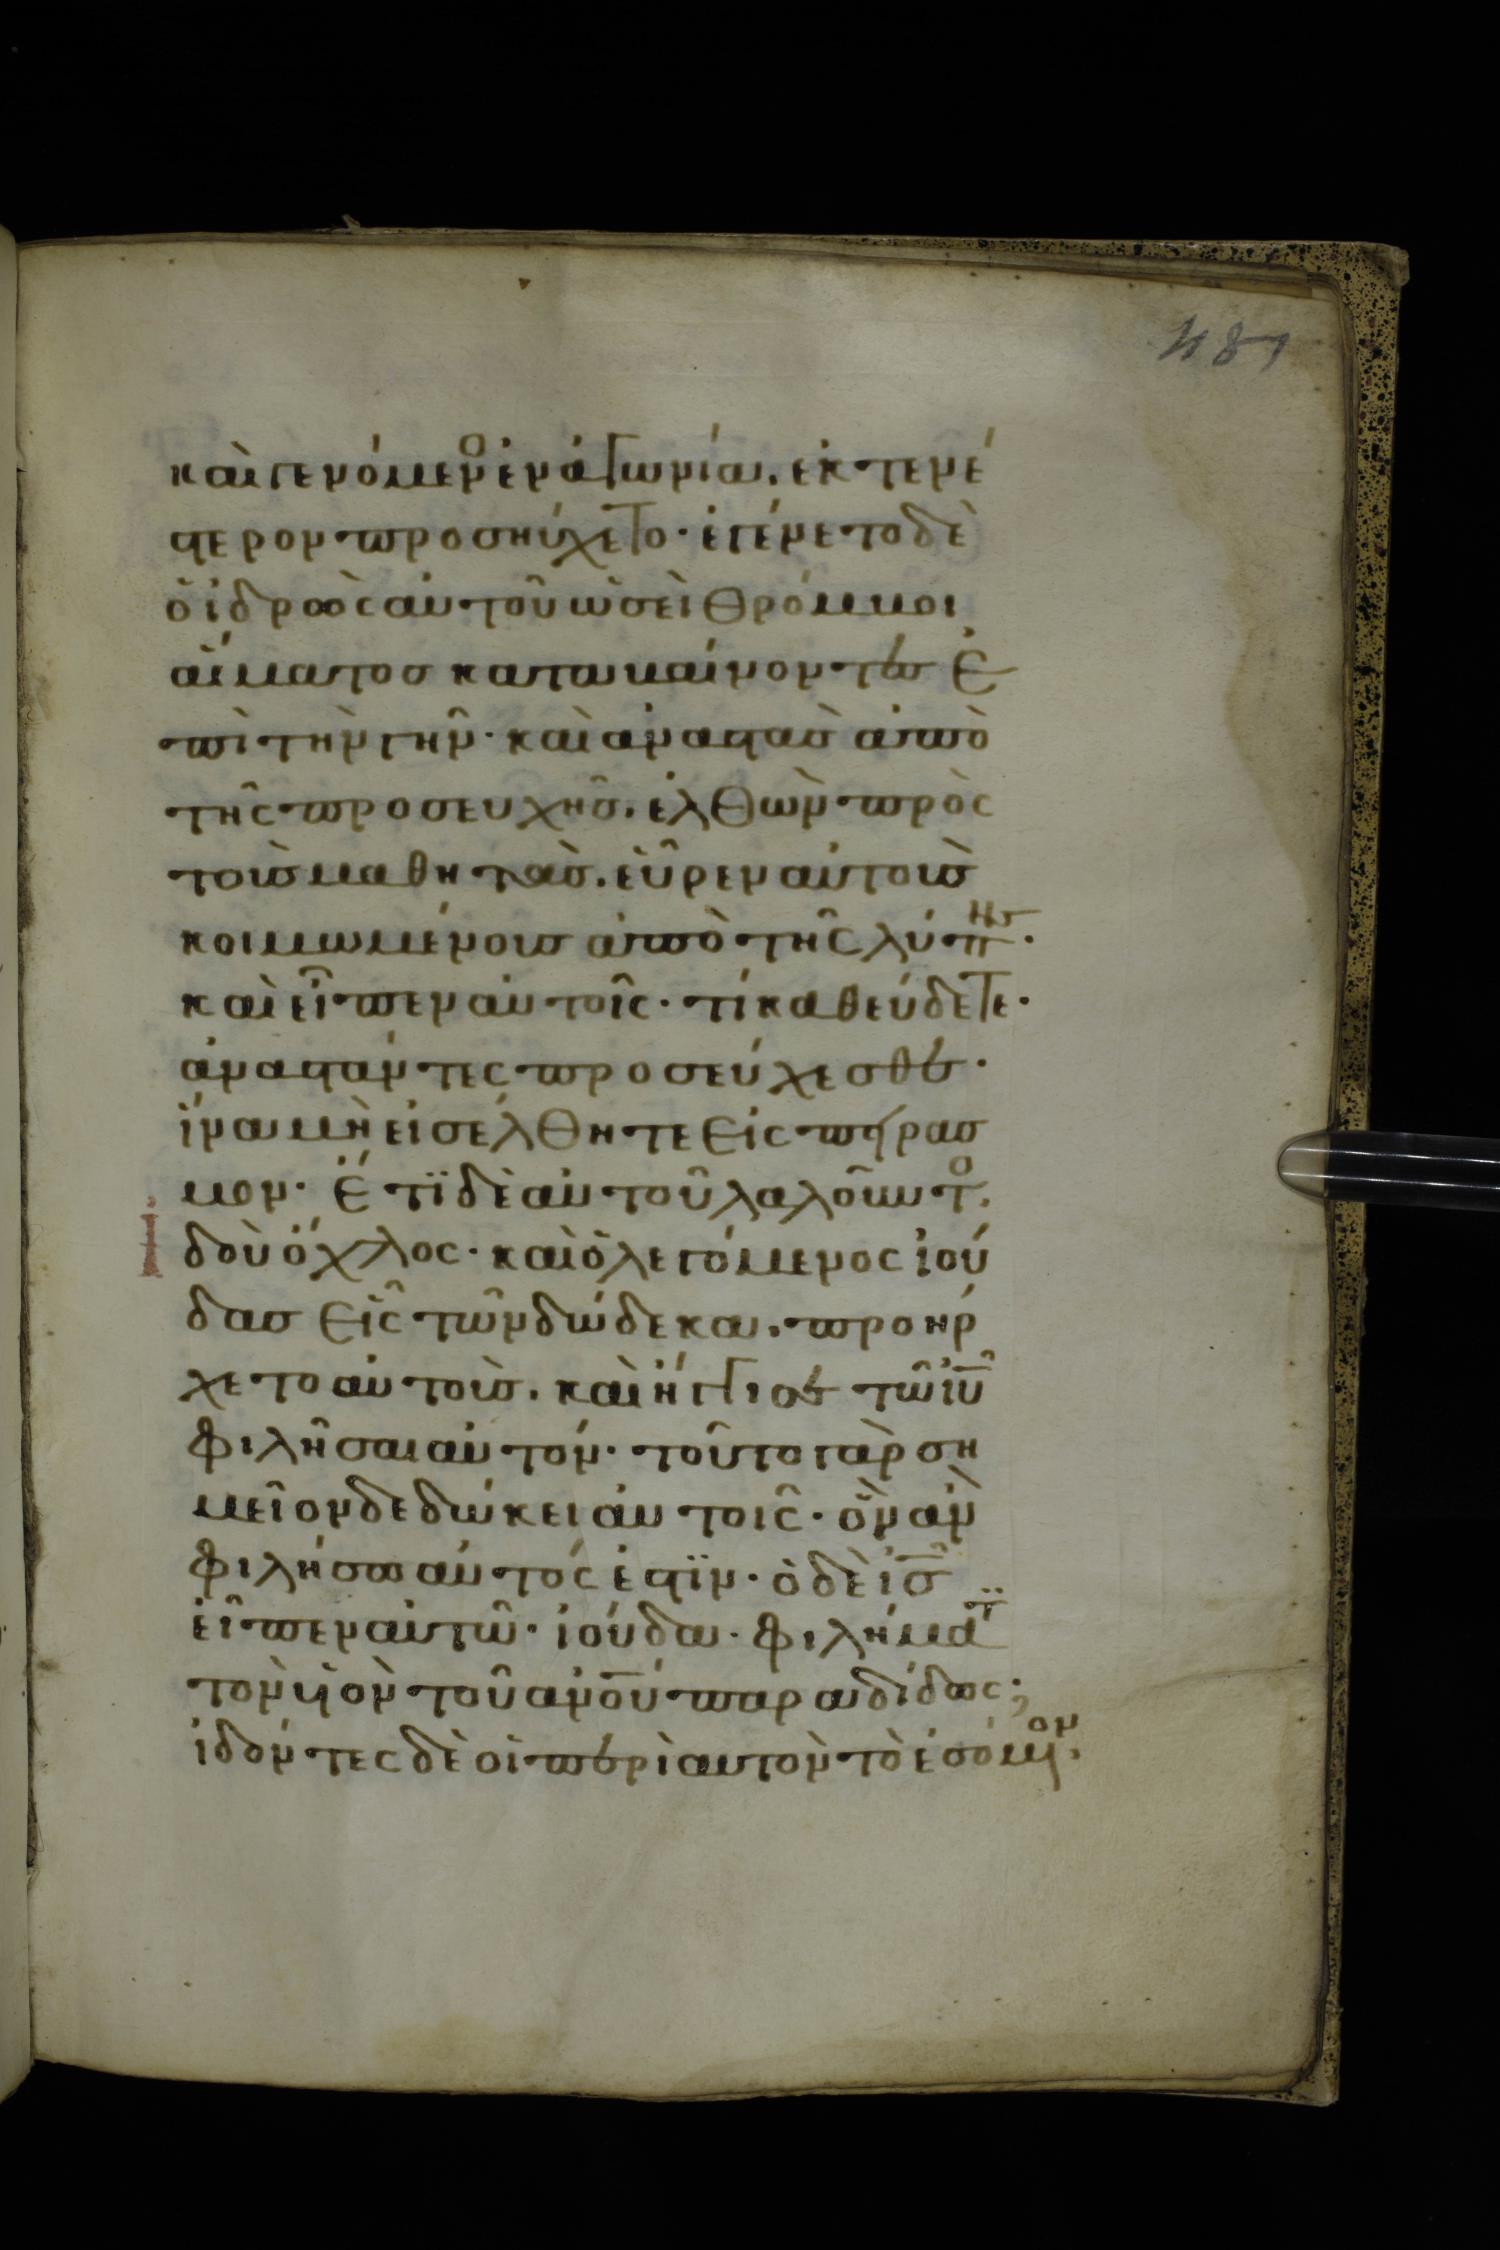 481
καὶ γενόμενο ἐν ἀγωνία, ἐκτενέ
στερον προσηύχετο· ἐγένετο δὲ
ὁ ἱδρὼς αὐτοῦ ὡσεὶ θρόμμοι
αἵματος καταμαίνοντες ἐ
πὶ τὴν γῆν· καὶ ἀναστὰς ἀπὸ
τῆς προσευχῆς, ἐλθὼν πρὸς
τοὺς μαθητὰς, εὗρεν αὐτοὺς
κοιμωμένους ἀπὸ τῆς λύπης·
καὶ εἶπεν αὐτοῖς· τί καθεύδετε·
ἀναστάντες προσεύχεσθε·
ἵνα μὴ εἰσέλθητε εἰς πήρασ
μον· Ἔτϊ δὲ αὐτοῦ λαλοῦντο,
Ἰδοὺ ὄχλος· καὶ ὁ λεγόμενος ἰού
δας εἷς τῶν δώδεκα, προηρ
χετο αὐτοὺς, καὶ ἤγγισε τῶ ἰῦ
φιλῆσαι αὐτόν· τοῦτο γὰρ ση
μεῖον δεδώκει αὐτοῖς· ὃν ἂν
φιλήσω αὐτός ἐστϊν· ὁ δὲ ἰς
εἶπεν αὐτῶ· ἰούδα· φιλήματϊ
τὸν ϋἱὸν τοῦ ἀνου παραδίδως;
ἰδόντες δὲ οἱ περὶ αυτὸν τὸ ἐσόμενον,